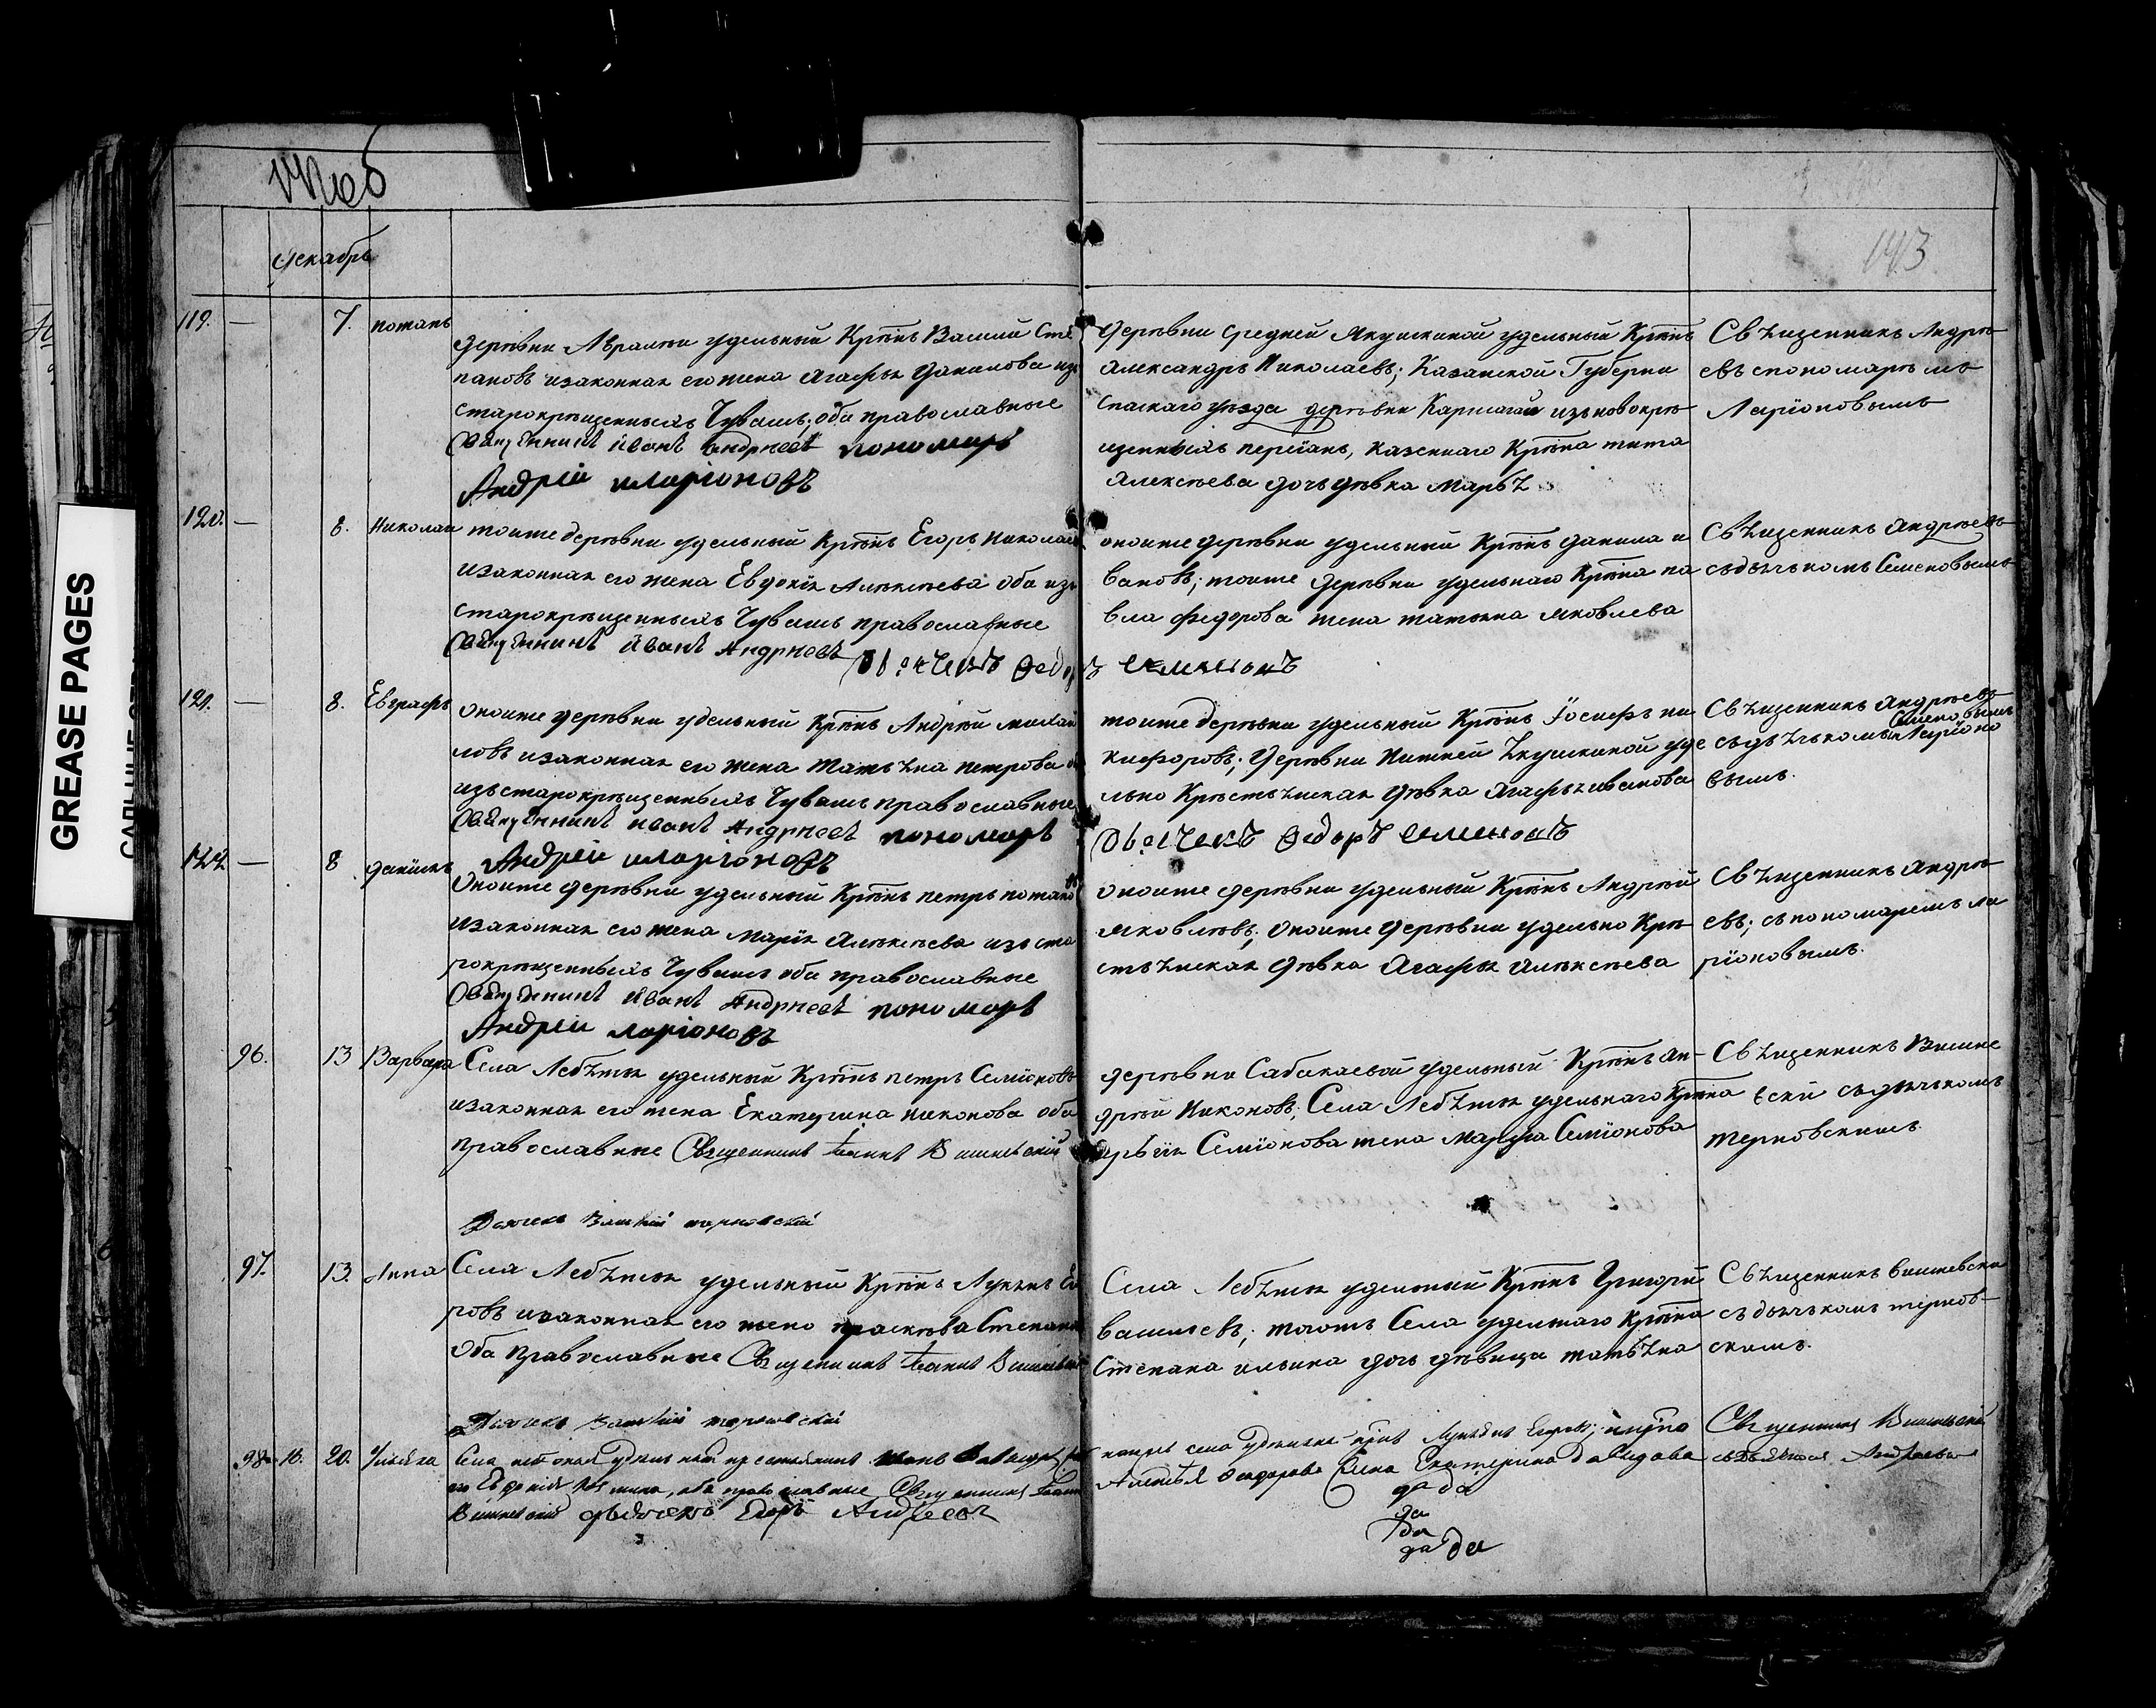 декабрь
143
GREASE PAGES
119. — 7. потапъ
деревни Авралѣи удельный Крѣнъ Василий Сте
пановъ изаконная его жена Агафья Данилова изъ
старокрѣщенныхъ Чувашъ; оба православные
Священникъ Иванъ Андреевъ пономарь
Андрей илларіоновъ
деревни средней Якушкиной удельный Крѣнъ
Александръ Николаевъ; Казанской Губерни
спаскаго уѣзда деревни изъновокрѣ
щенныхъ казеннаго Крѣна тита
Алексѣева дочь дѣвка Марья
Священникъ Андрѣ
евъ спономарѣмъ
Ларіоновымъ
120. — 8. Николай
тоиже деревни удельный Крѣнъ Егоръ Николаев
изаконная его жена Евдокія Алѣксѣева оба изъ
старокрѣщенныхъ Чувашъ православные
Священникъ Иванъ Андреевъ
Дьячекъ Федоръ семеновъ
оноиже деревни удельный Крѣнъ Данила и
вановъ; тоиже деревни удельнаго Крѣна па
вла федорова жена татьяна яковлева
Священникъ Андрѣевъ
съдьячькомъ Семеновымъ
121. — 8. Евграфъ
оноиже деревни удельный Крѣнъ Андрѣй михай
ловъ изаконная его жена татьяна петрова
изъстарокрѣщенныхъ Чувашъ православные
Священникъ Иванъ Андреевъ пономарь
Андрей илларіоновъ
тоиже деревни удельный Крѣнъ Іосифъ ни
кифоровъ; деревни Нижней Якушкиной уде
льно Крѣстьянская дѣвка Агафья иванова
Дьячекъ Федоръ семеновъ
Священникъ Андрѣевъ
Семеновымъ
съдьячькомъ Ларіоно
вымъ.
122. — 8 даніилъ
оноиже деревни удельный Крѣнъ петръ потапо
изаконная его жена марія Алѣксѣева изъ ста
рокрѣщенныхъ Чувашъ оба православные
Священникъ Иванъ Андреевъ пономарь
Андрей ларіоновъ
оноиже деревни удельный Крѣнъ Андрѣй
яковлѣвъ; оноиже деревни удельно Крѣ
стьянская дѣвка Агафья Алѣксѣева
Священникъ Андрѣ
евъ; съпономаремъ ла
ріоновымъ.
96. 13 Варвара
Села Лебяжья удельный Крѣнъ петръ Семіоновъ
изаконная его жена Екатерина никонова оба
православные Священникъ Іоаннъ Вишневский
Дьячекъ Василий терновский
деревни Сабакаевой удельный Крѣнъ Ан-
дрѣй Никоновъ; Села Лебяжья удельнаго Крѣна
Семіонова жена марфа Семіонова
Священникъ Вишне
вски съдьячькомъ
терновскимъ.
97. 13. Анна
Села Лебяжья удельный Крѣнъ Лукьянъ Его
ровъ изаконная его жена прасковья Степано
Оба православные Священникъ Іоаннъ Вишневский
Дьячекъ Василий терновский
Села Лебяжья удельный Крѣнъ Григорий
Васильевъ; тогожъ Села удельнаго Крѣна
Степана ильина дочь дѣвица татьяна
Священникъ вишневски
съдьячькомъ тернов-
скимъ.
98. 16. 20. Ульяна
оба православные Священникъ Іоаннъ
Вишневский дьячекъ Егоръ Андреевъ
Лукьянъ Егоровъ;
Федорова жена Екатерина Давидова
да да
да
да
да да
Священникъ Вишневский
съдьячкомъ Андреевымъ